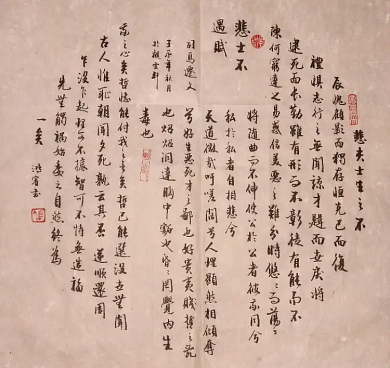 悲夫士生之不
辰愧顧影而獨存恒克己而復
禮懼志行之無聞諒才韙而世戾將
逮死而長勤雖有形而不彰徒有能而不
陳何窮達之易惑信美惡之難分時悠悠而蕩蕩
將遂屈而不伸使公於公者彼我同兮
私於私者自相悲兮
天道微哉吁嗟闊兮人理顯然相傾奪
兮好生惡死才之鄙也好貴夷賤哲之亂
也炤炤洞達胸中豁也昏昏罔覺內生
毒也
我之心矣哲已能忖我之言矣哲已能選沒世無聞
古人惟恥朝聞夕死孰云其否逆順還周
乍沒乍起理不可據智不可恃無造福
先無觸禍始委之自然終歸
一矣
悲士不
遇賦
司馬遷文